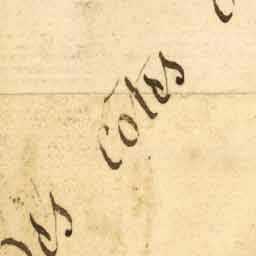 Des côtes